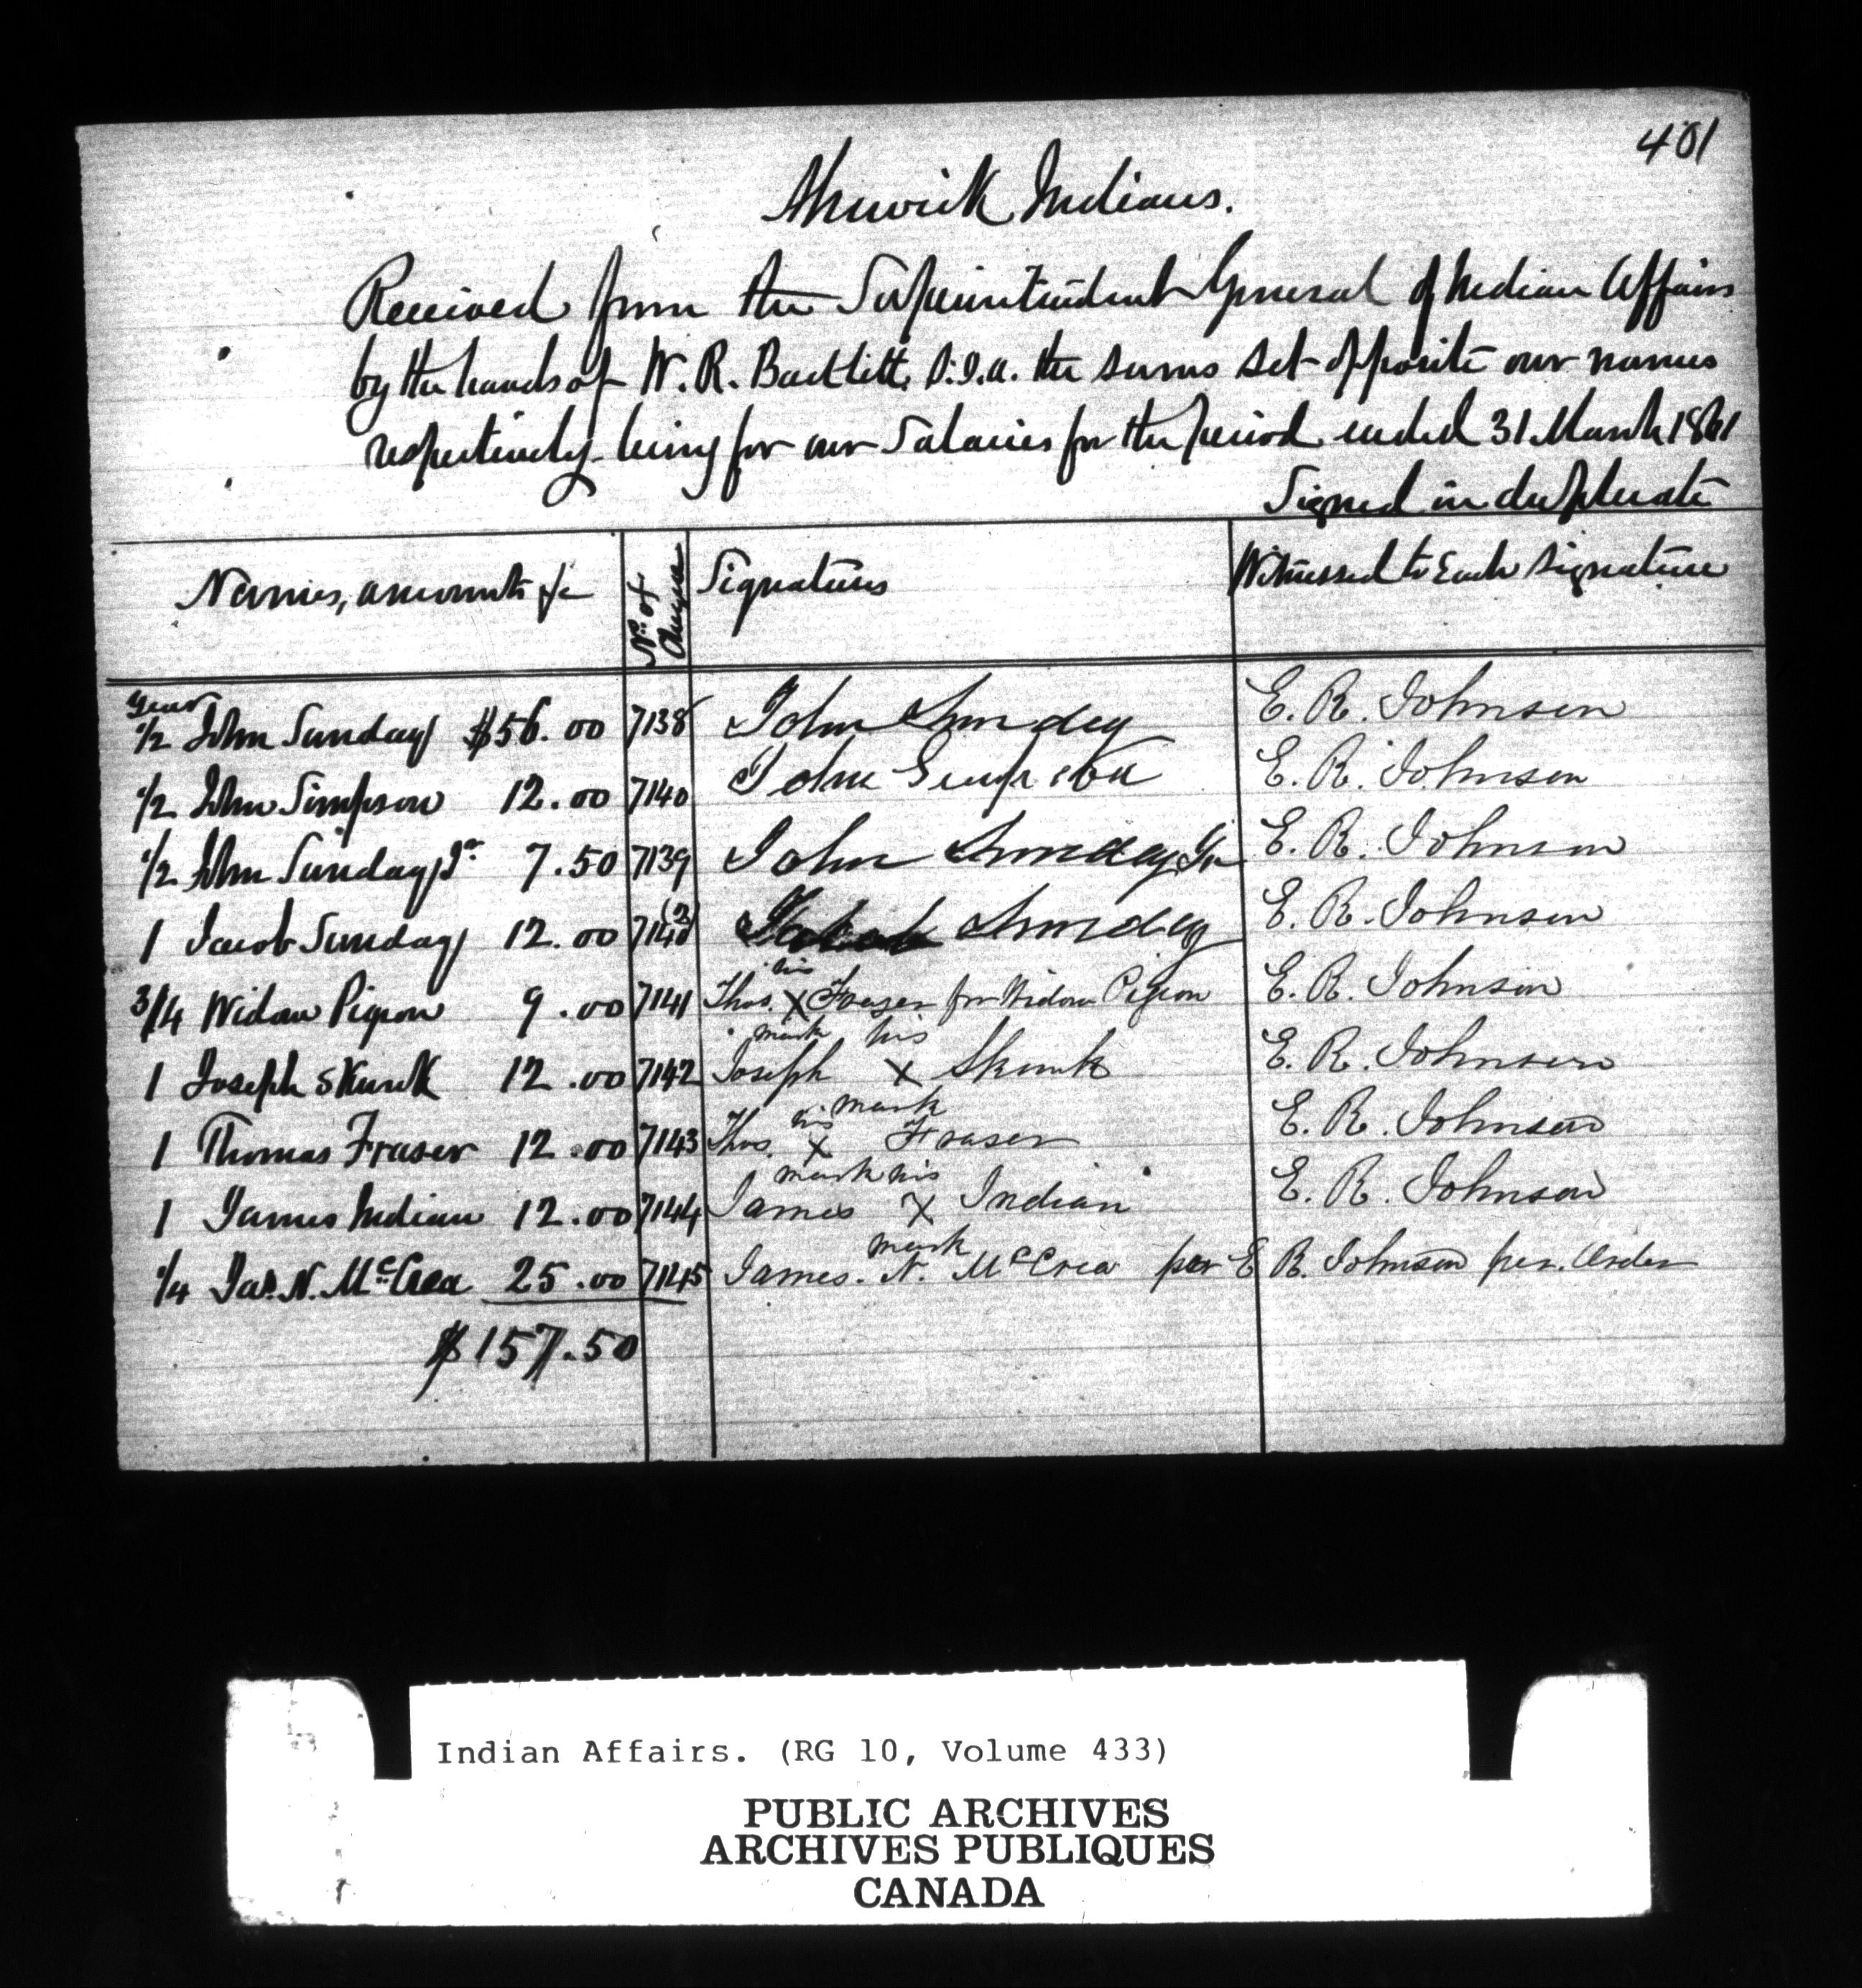 401
Alnwick Indians.
Received from the Superintendent General of Indian Affairs
by the hands of W. R. Bartlett, S.I.A. the sums set opposite our names
respectively being for our Salaries for the period ended 31 March 1861
Signed in duplicate
Names, amounts &c | No. of Cheque | Signatures | Witnessed to Each Signature
Year
1/2 John Sunday $56.00 7138 John Sunday E. R. Johnson
1/2 John Simpson 12.00 7140 John Simpson E. R. Johnson
1/2 John Sunday Jr 7.50 7139 John Sunday Jn E. R. Johnson
1 Jacob Sunday 12.00 7140(2) Jacob Sunday E. R. Johnson
his
3/4 Widow Pigeon 9.00 7141 Thos. X Frazer for Widow Pigeon E. R. Johnson
mark his
1 Joseph Skunk 12.00 7142 Joseph X Skunk E. R. Johnson
his mark
1 Thomas Fraser 12.00 7143 Thos. X Fraser E. R. Johnson
mark his
1 James Indian 12.00 7144 James X Indian E. R. Johnson
mark
1/4 Jas. N. McCrea 25.00 7145 James. N. McCrea per E R. Johnson per. Order
$157.50
Indian Affairs. (RG 10, Volume 433)
PUBLIC ARCHIVES
ARCHIVES PUBLIQUES
CANADA